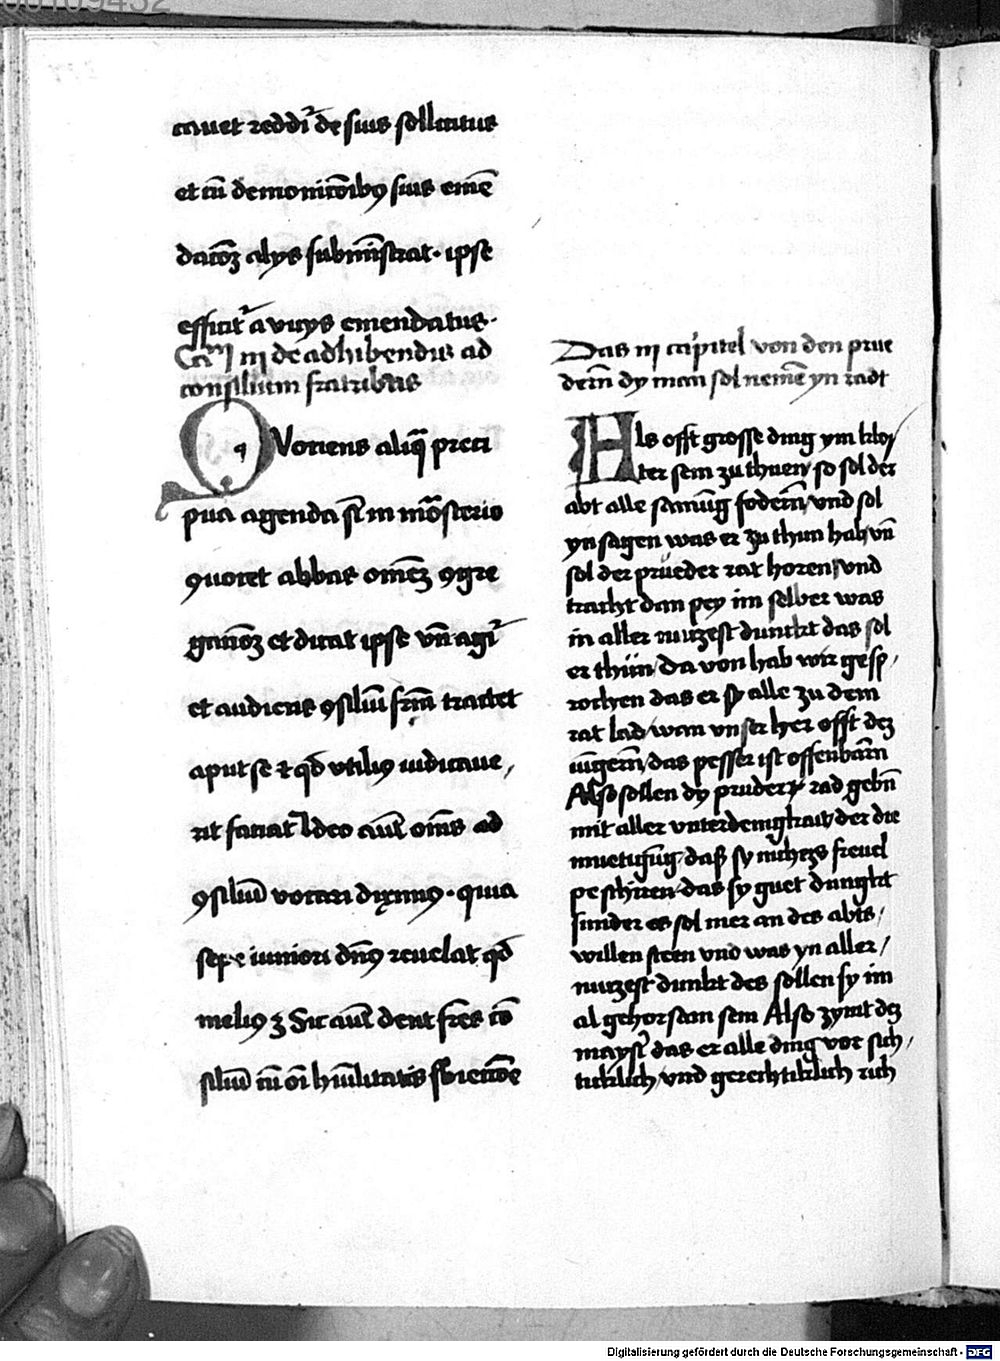 cauet reddiͬ de suis sollicitus
et cū demonicōibꝯ suis emē
dacōꝫ alys submīstrat · ipse
efficitͬ a vicys emendatus ·
Caᵐ iij de adhibendis ad
consilium fratribus
Quociens aliq̄ preci
pua agenda sͭ in mōsterio
ꝯuocet abbas omēꝫ ꝯgre
gacōꝫ et dicat ipse vn̄ agiͬ
et audiens ꝯsiliū frm̄ tractet
aput se et qd̄ vtiliꝯ iudicaue /
rit faciat Ideo aūt om̄s ad
ꝯsiliū vocari diximꝯ · quia
sepe iuniori dn̄ꝯ reuelat qd̄
meliꝯ ꝫ Sic aūt dent fr̄es cō
siliū cū oī hūilitatis sb̄iectiōe
Das iij capitel von den prue
dern̄ dy man sol nemē yn radt
Als offt grosse ding ym klo /
ster sein zu thuen so sol der
abt alle samūg fodern̄ / vnd sol
yn sagen was er zu thun hab / vn̄
sol der prueder rat horen / vnd
tracht dan pey im selber was
in aller nuczest dunckt das sol
er thün / da von hab wir gesp /
rochen das er sy alle zu dem
rat lad / wan vnser her offt dez
iūgern̄ / das pesser ist offenbarn̄
Also sollen dy pruder / rad gebn̄
mit aller vnterdenigkait / der die
muetigūg / daß sy nichezs freuel
peschiren / das sy guet dungkt
sunder es sol mer an des abts /
willen steen vnd was yn aller /
nuczest dunkt des sollen sy im
al gehorsam sein Also zymt dez
maystͬ das er alle ding vor sich /
ticklich / vnd gerechticklich rich
Digitalisierung gefördert durch die Deutsche Forschungsgemeinschaft - DFG